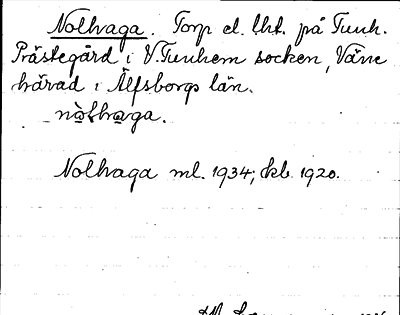 Nolhaga. Torp el. lht. på Tunh.
Prästegård i V. Tunhem socken, Väne
härad i Älfsborgs län.
nòlhaga.
Nolhaga ml. 1934; kb 1920.